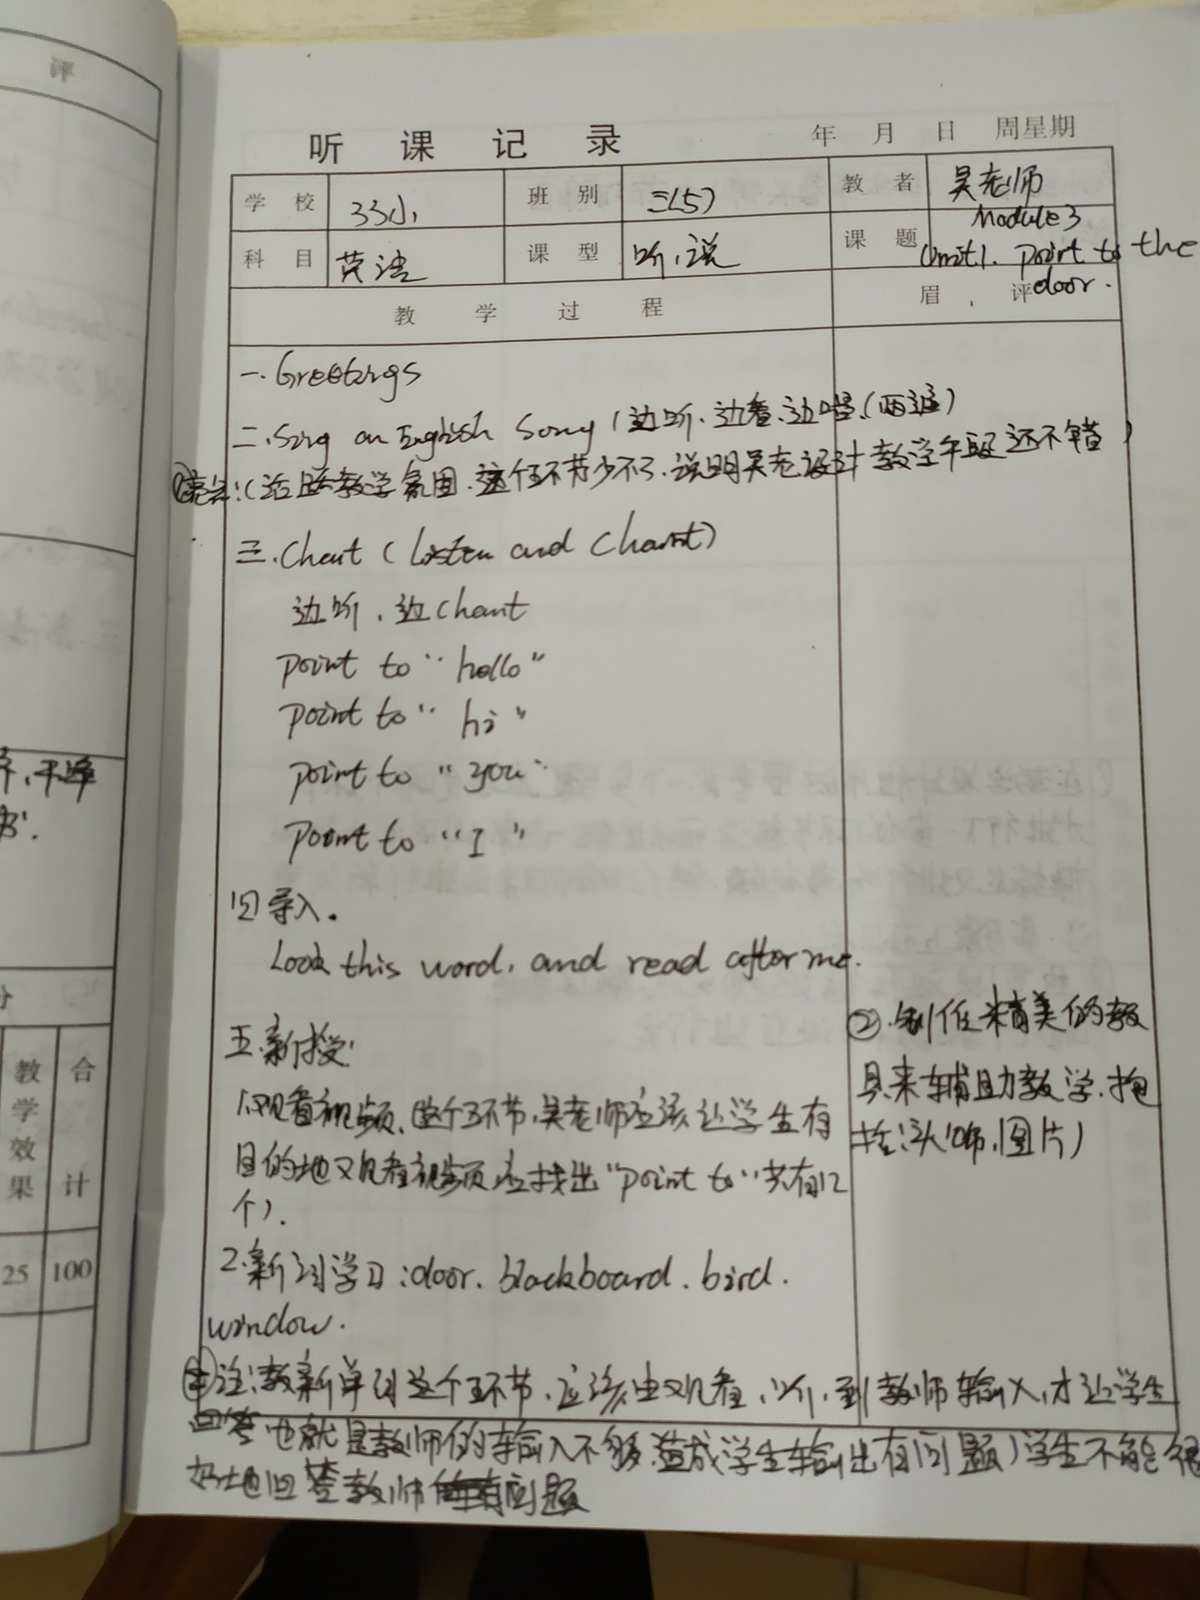 评
听 课 记 录 年 月 日 周星期
学 校 33小 班 别 三(5) 教 者 吴老师
科 目 英语 课 型 听、说 课 题 Module 3
Unit 1. point to the door.
教 学 过 程 眉 评
一. Greetings
二. Sing an English Song (边听、边看、边唱、(两遍)
①亮点:(活跃教学氛围,这个环节少不了,说明吴老设计教学年段还不错)
三. Chant (Listen and Chant)
边听、边chant
point to "hello"
point to "hi"
point to "you"
point to "I"
四导入.
Look this word, and read after me.
五.新授:
1.观看视频,(这个环节,吴老师应该让学生有
目的地观看视频,应找出"point to"共有12
个).
2.新词学习:door. blackboard. bird.
window.
②.制作精美的教
具来辅助教学.包
括:头饰,图片)
注:教新单词这个环节,应该由观看,听,到教师输入,才让学生
回答也就是教师的输入不够,造成学生输出有问题)学生不能很
好地回答教师问题
分
教学效果 合计
25 100